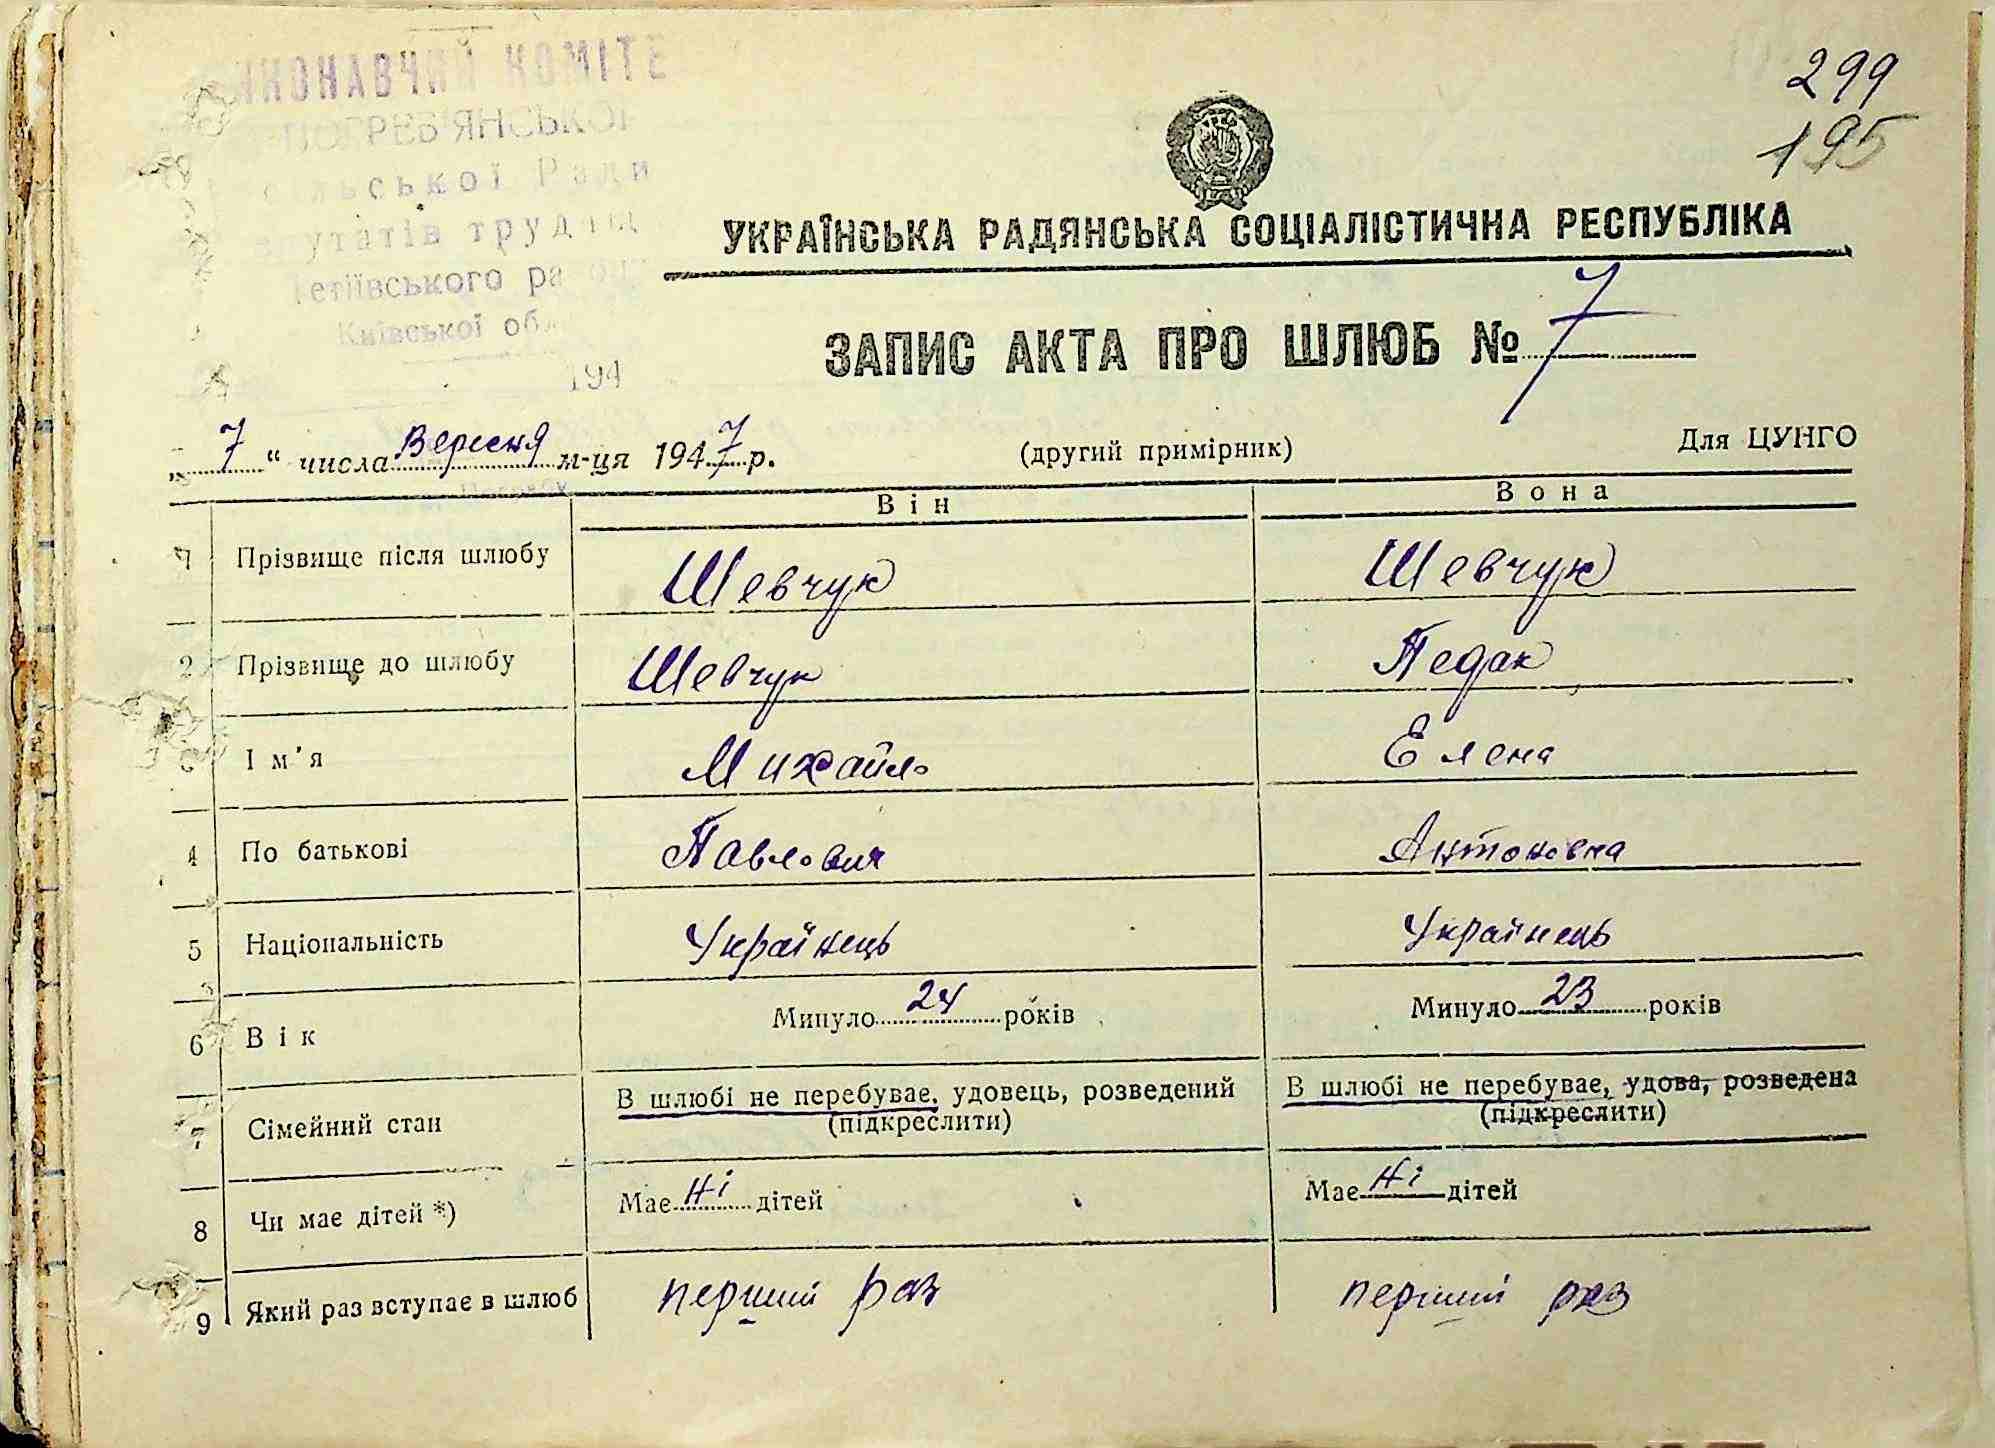 299
195
КОМІТЕ
сільської Ради
Київської
194
УКРАЇНСЬКА РАДЯНСЬКА СОЦІАЛІСТИЧНА РЕСПУБЛІКА
ЗАПИС АКТА ПРО ШЛЮБ № 7
„7“ числа Вересня м-ця 1947 р. (другий примірник) Для ЦУНГО
Він Вона
1 Прізвище після шлюбу Шевчук Шевчук
2 Прізвище до шлюбу Шевчук Педак
3 Ім'я Михайло Елена
4 По батькові Павлович Антоновна
5 Національність Українець Українець
6 Вік Минуло 24 років Минуло 23 років
7 Сімейний стан В шлюбі не перебуває, удовець, розведений В шлюбі не перебуває, удова, розведена
(підкреслити) (підкреслити)
8 Чи має дітей *) Має Ні дітей Має Ні дітей
9 Який раз вступає в шлюб перший раз перший раз